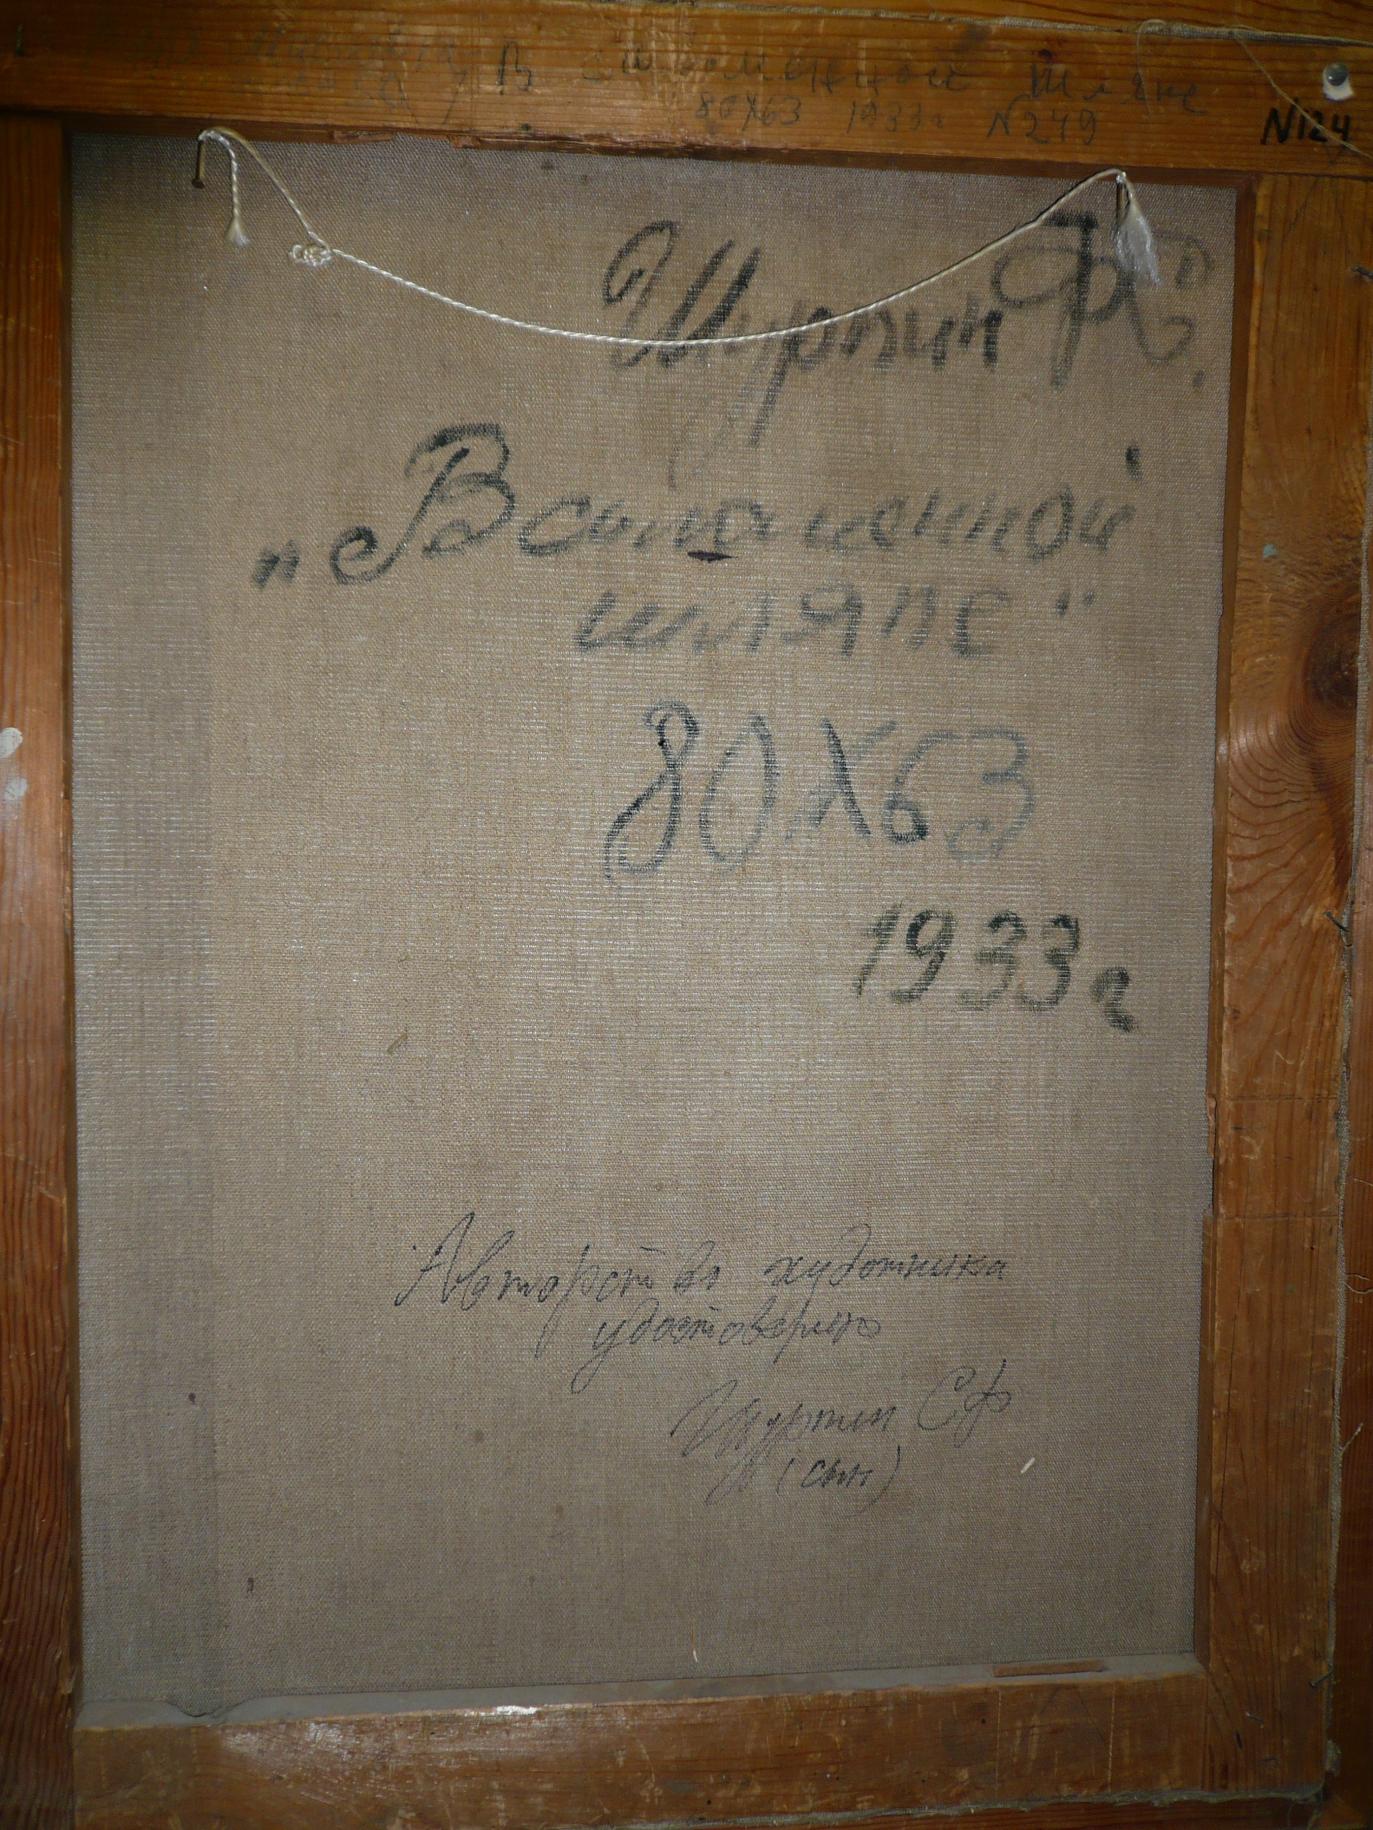 В соломенной шляпе
80х63 1933г N249
N124
Шурпин Ф.С.
"В соломенной
шляпе"
80X63
1933г
Авторство художника
удостоверяю
Шурпин СФ
(сын)